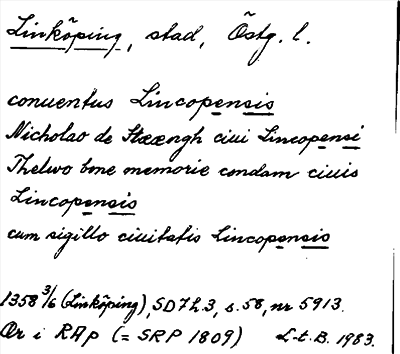 Linköping, stad, Östg. l.
conuentus Lincopensis
Nicholao de Stææengh ciui Lincopensi
Thelwo bone memorie condam ciuis
Lincopensis
cum sigillo ciuitatis Lincopensis
1358 3/6 (Linköping), SD 7 h. 3, s. 58, nr 5913.
Or i RAp (= SRP 1809) L-t. B. 1983.